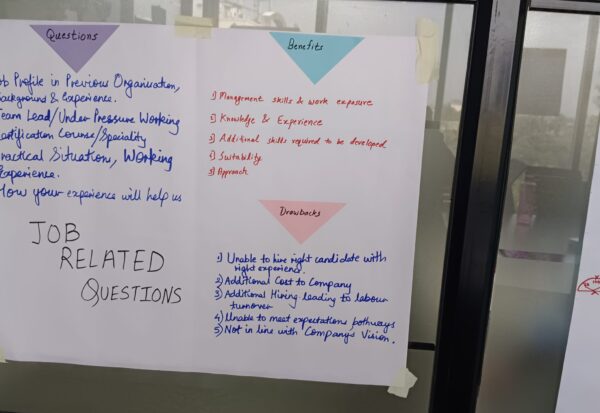 Questions
ob Profile in Previous Organisation,
Background & Experience.
Team Lead/Under Pressure Working
Certification Course/Speciality
Practical Situation, Working
Experience.
How your experience will help us
JOB
RELATED
QUESTIONS
Benefits
1) Management skills & work exposure
2) Knowledge & Experience
3) Additional skills required to be developed
4) Suitability
5) Approach
Drawbacks
1) Unable to hire right candidate with
right experience.
2) Additional Cost to Company
3) Additional Hiring leading to labour
turnover
4) Unable to meet expectations bothways
5) Not in line with Company's Vision.